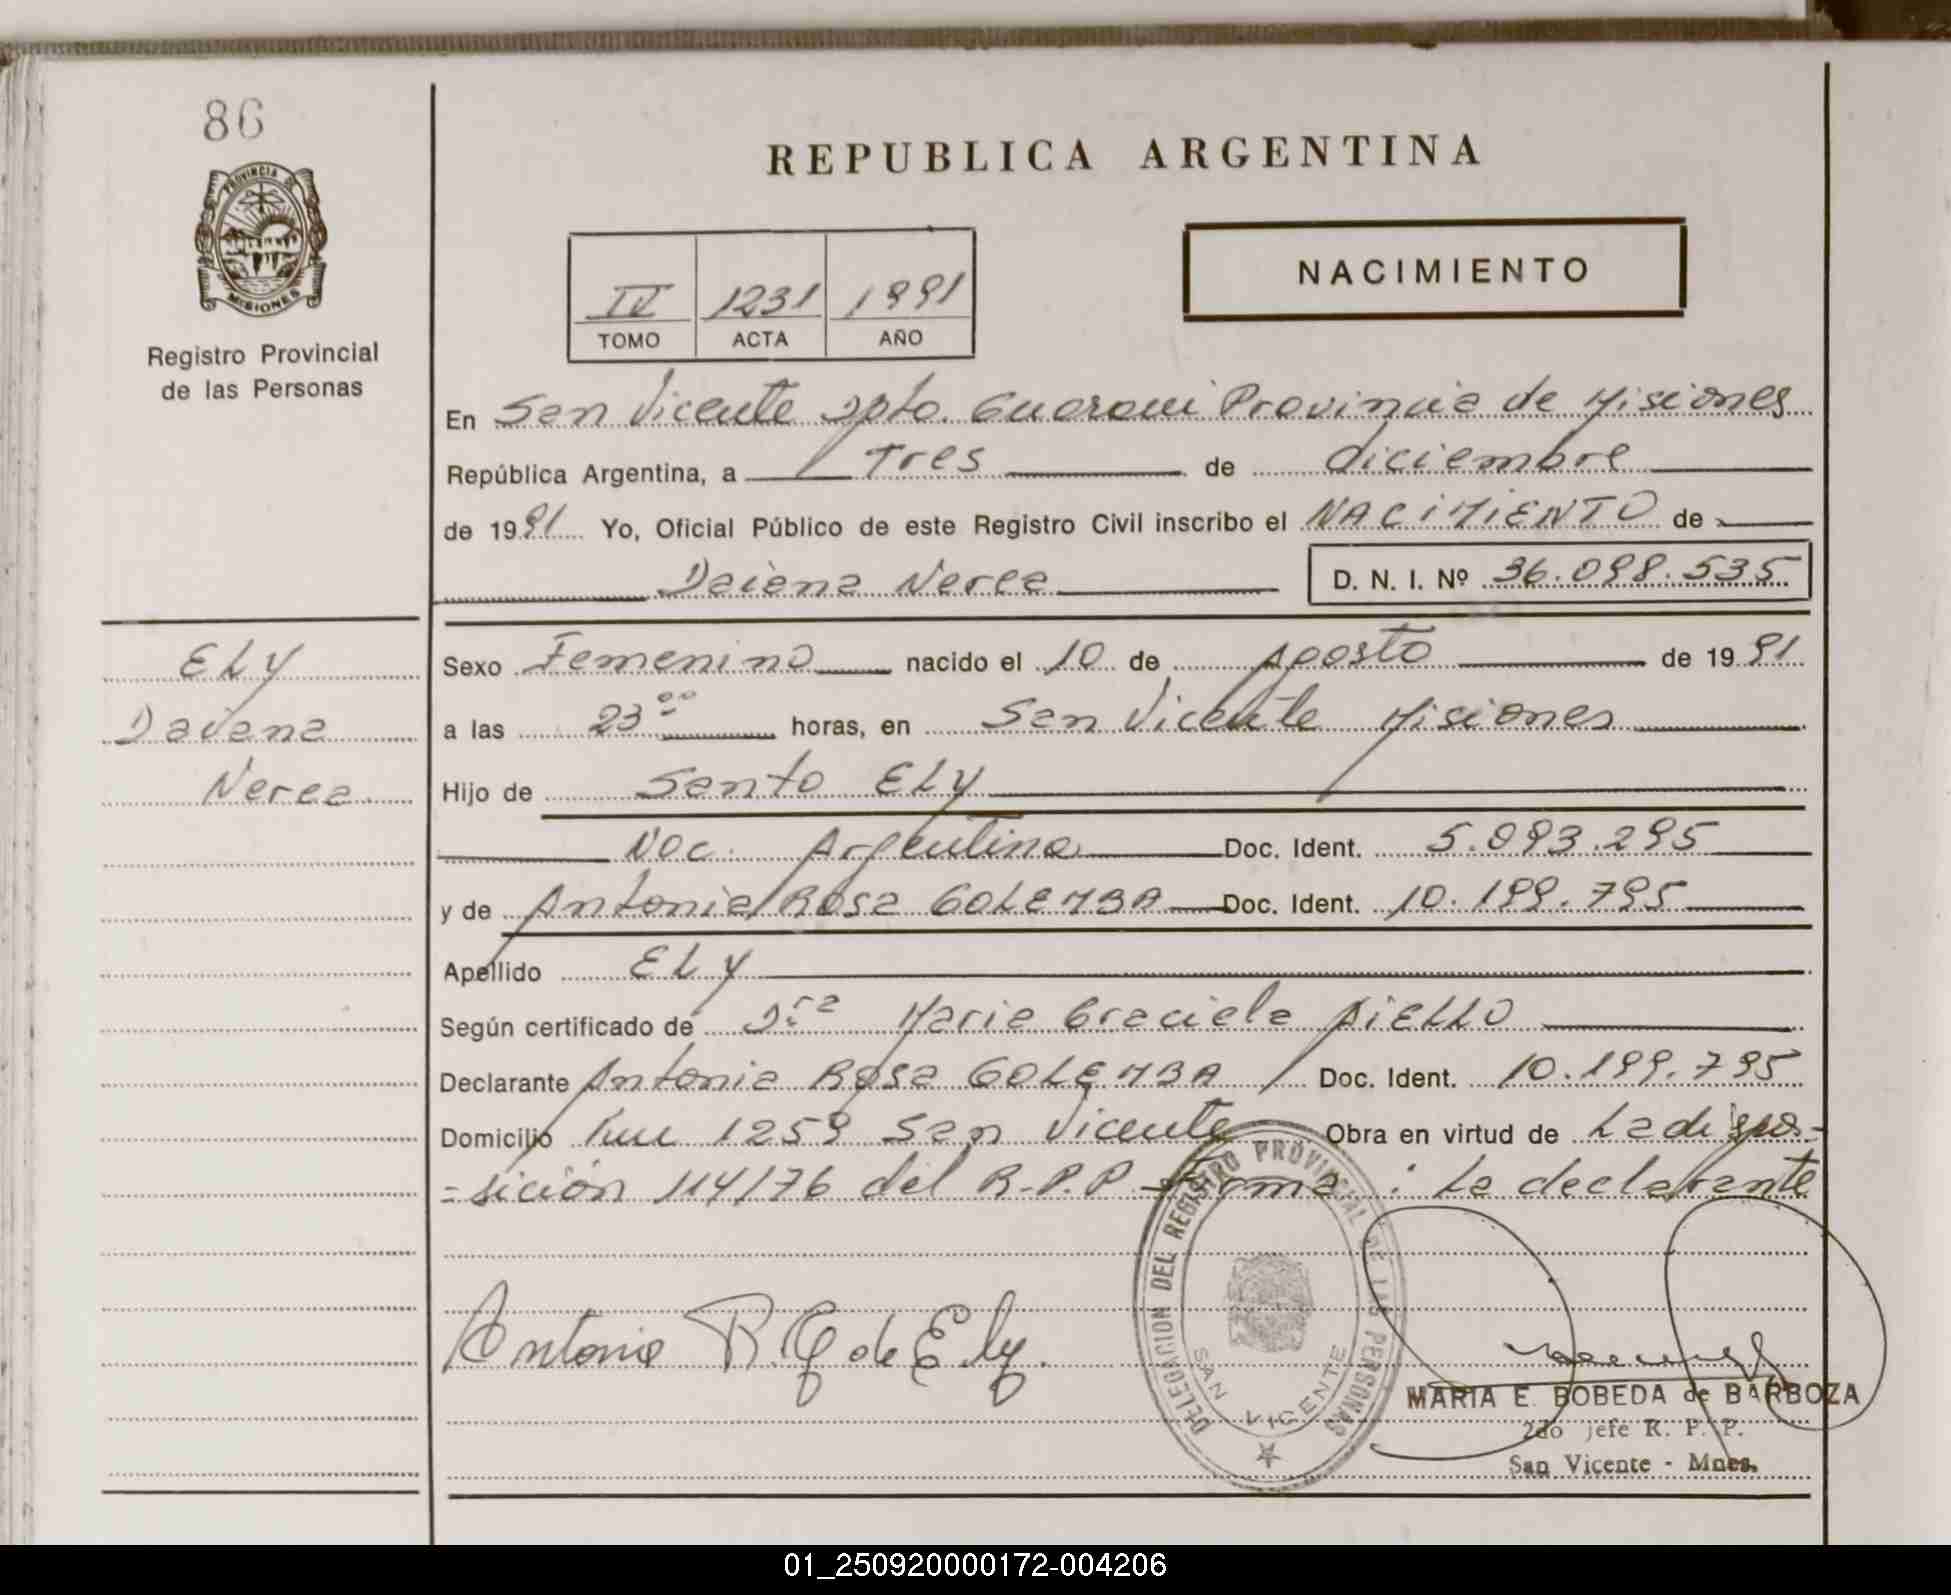 86
PROVINCIA DE
MISIONES
Registro Provincial
de las Personas
REPUBLICA ARGENTINA
IV 1231 1991
TOMO ACTA AÑO
NACIMIENTO
En San Vicente Dpto. Guarani Provincia de Misiones
República Argentina, a Tres de diciembre
de 1991 Yo, Oficial Público de este Registro Civil inscribo el NACIMIENTO de
Daiana Nerea D. N. I. Nº 36.098.535
ELY
Daiana
Nerea
Sexo Femenino nacido el 10 de Agosto de 1991
a las 23 00 horas, en San Vicente Misiones
Hijo de Santo ELY
Nac. Argentina Doc. Ident. 5.093.295
y de Antonia Rosa GOLEMBA Doc. Ident. 10.199.795
Apellido ELY
Según certificado de Dra Maria Graciela AIELLO
Declarante Antonia Rosa GOLEMBA Doc. Ident. 10.199.795
Domicilio Km 1259 San Vicente Obra en virtud de La dispo-
=sición 114/76 del R.P.P. Firma: La declarante
Antonia R. G de Ely.
DELEGACION DEL REGISTRO PROVINCIAL DE LAS PERSONAS
SAN VICENTE
MARIA E. BOBEDA de BARBOZA
2do jefe R. P. P.
San Vicente - Mnes.
01_250920000172-004206